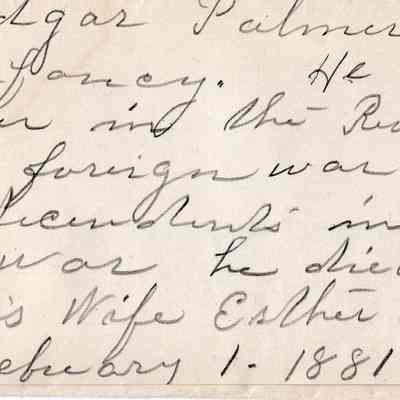 dgar Palmer
fancy. He
er in the Rev
foreign war
decendents in
war he died
is Wife Esther
ebuary 1. 1881